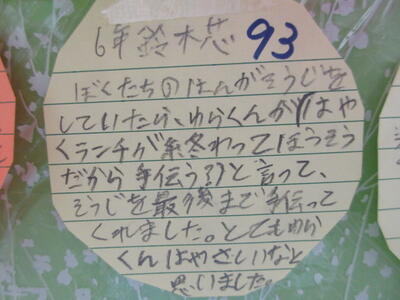 6年鈴木芯 93
ぼくたちのはんがそうじを
していたら、ゆらくんが「はや
くランチが終わってほうそう
だから手伝う」と言って、
そうじを最後まで手伝って
くれました。とてもゆら
くんはやさしいなと
思いました。